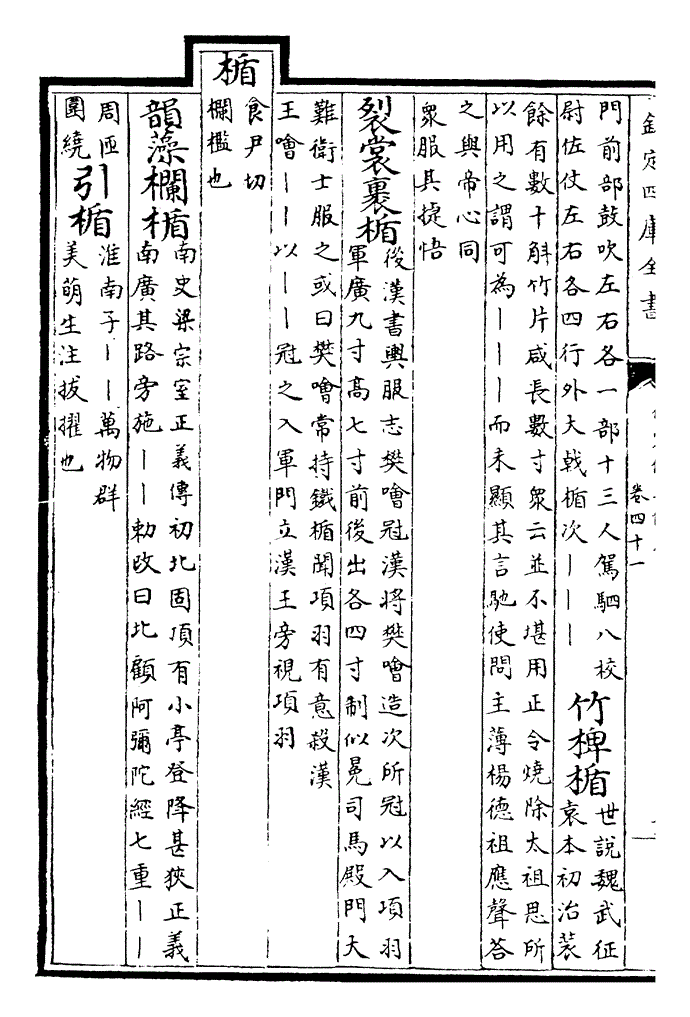 欽定四庫全書
卷四十一
門前部鼓吹左右各一部十三人駕駟八校
尉佐仗左右各四行外大戟楯次丨丨丨
竹椑楯
世説魏武征
袁本初治裝
餘有數十斛竹片咸長數寸衆云並不堪用正令燒除太祖思所
以用之謂可為丨丨丨而未顯其言馳使問主薄楊德祖應聲荅
之與帝心同
衆服其捷悟
裂裳裹楯
後漢書輿服志樊噲冠漢將樊噲造次所冠以入項羽
軍廣九寸髙七寸前後出各四寸制似冕司馬殿門大
難衛士服之或曰樊噲常持鐵楯聞項羽有意殺漢
王噲丨丨以丨丨冠之入軍門立漢王旁視項羽
楯
食尹切
欄檻也
韻藻欄楯
南史梁宗室正義傳初北固項有小亭登降甚狹正義
南廣其路旁施丨丨勅改曰北顧阿彌陀經七重丨丨
周匝
圍繞
引楯
淮南子丨丨萬物群
美萌生注拔擢也